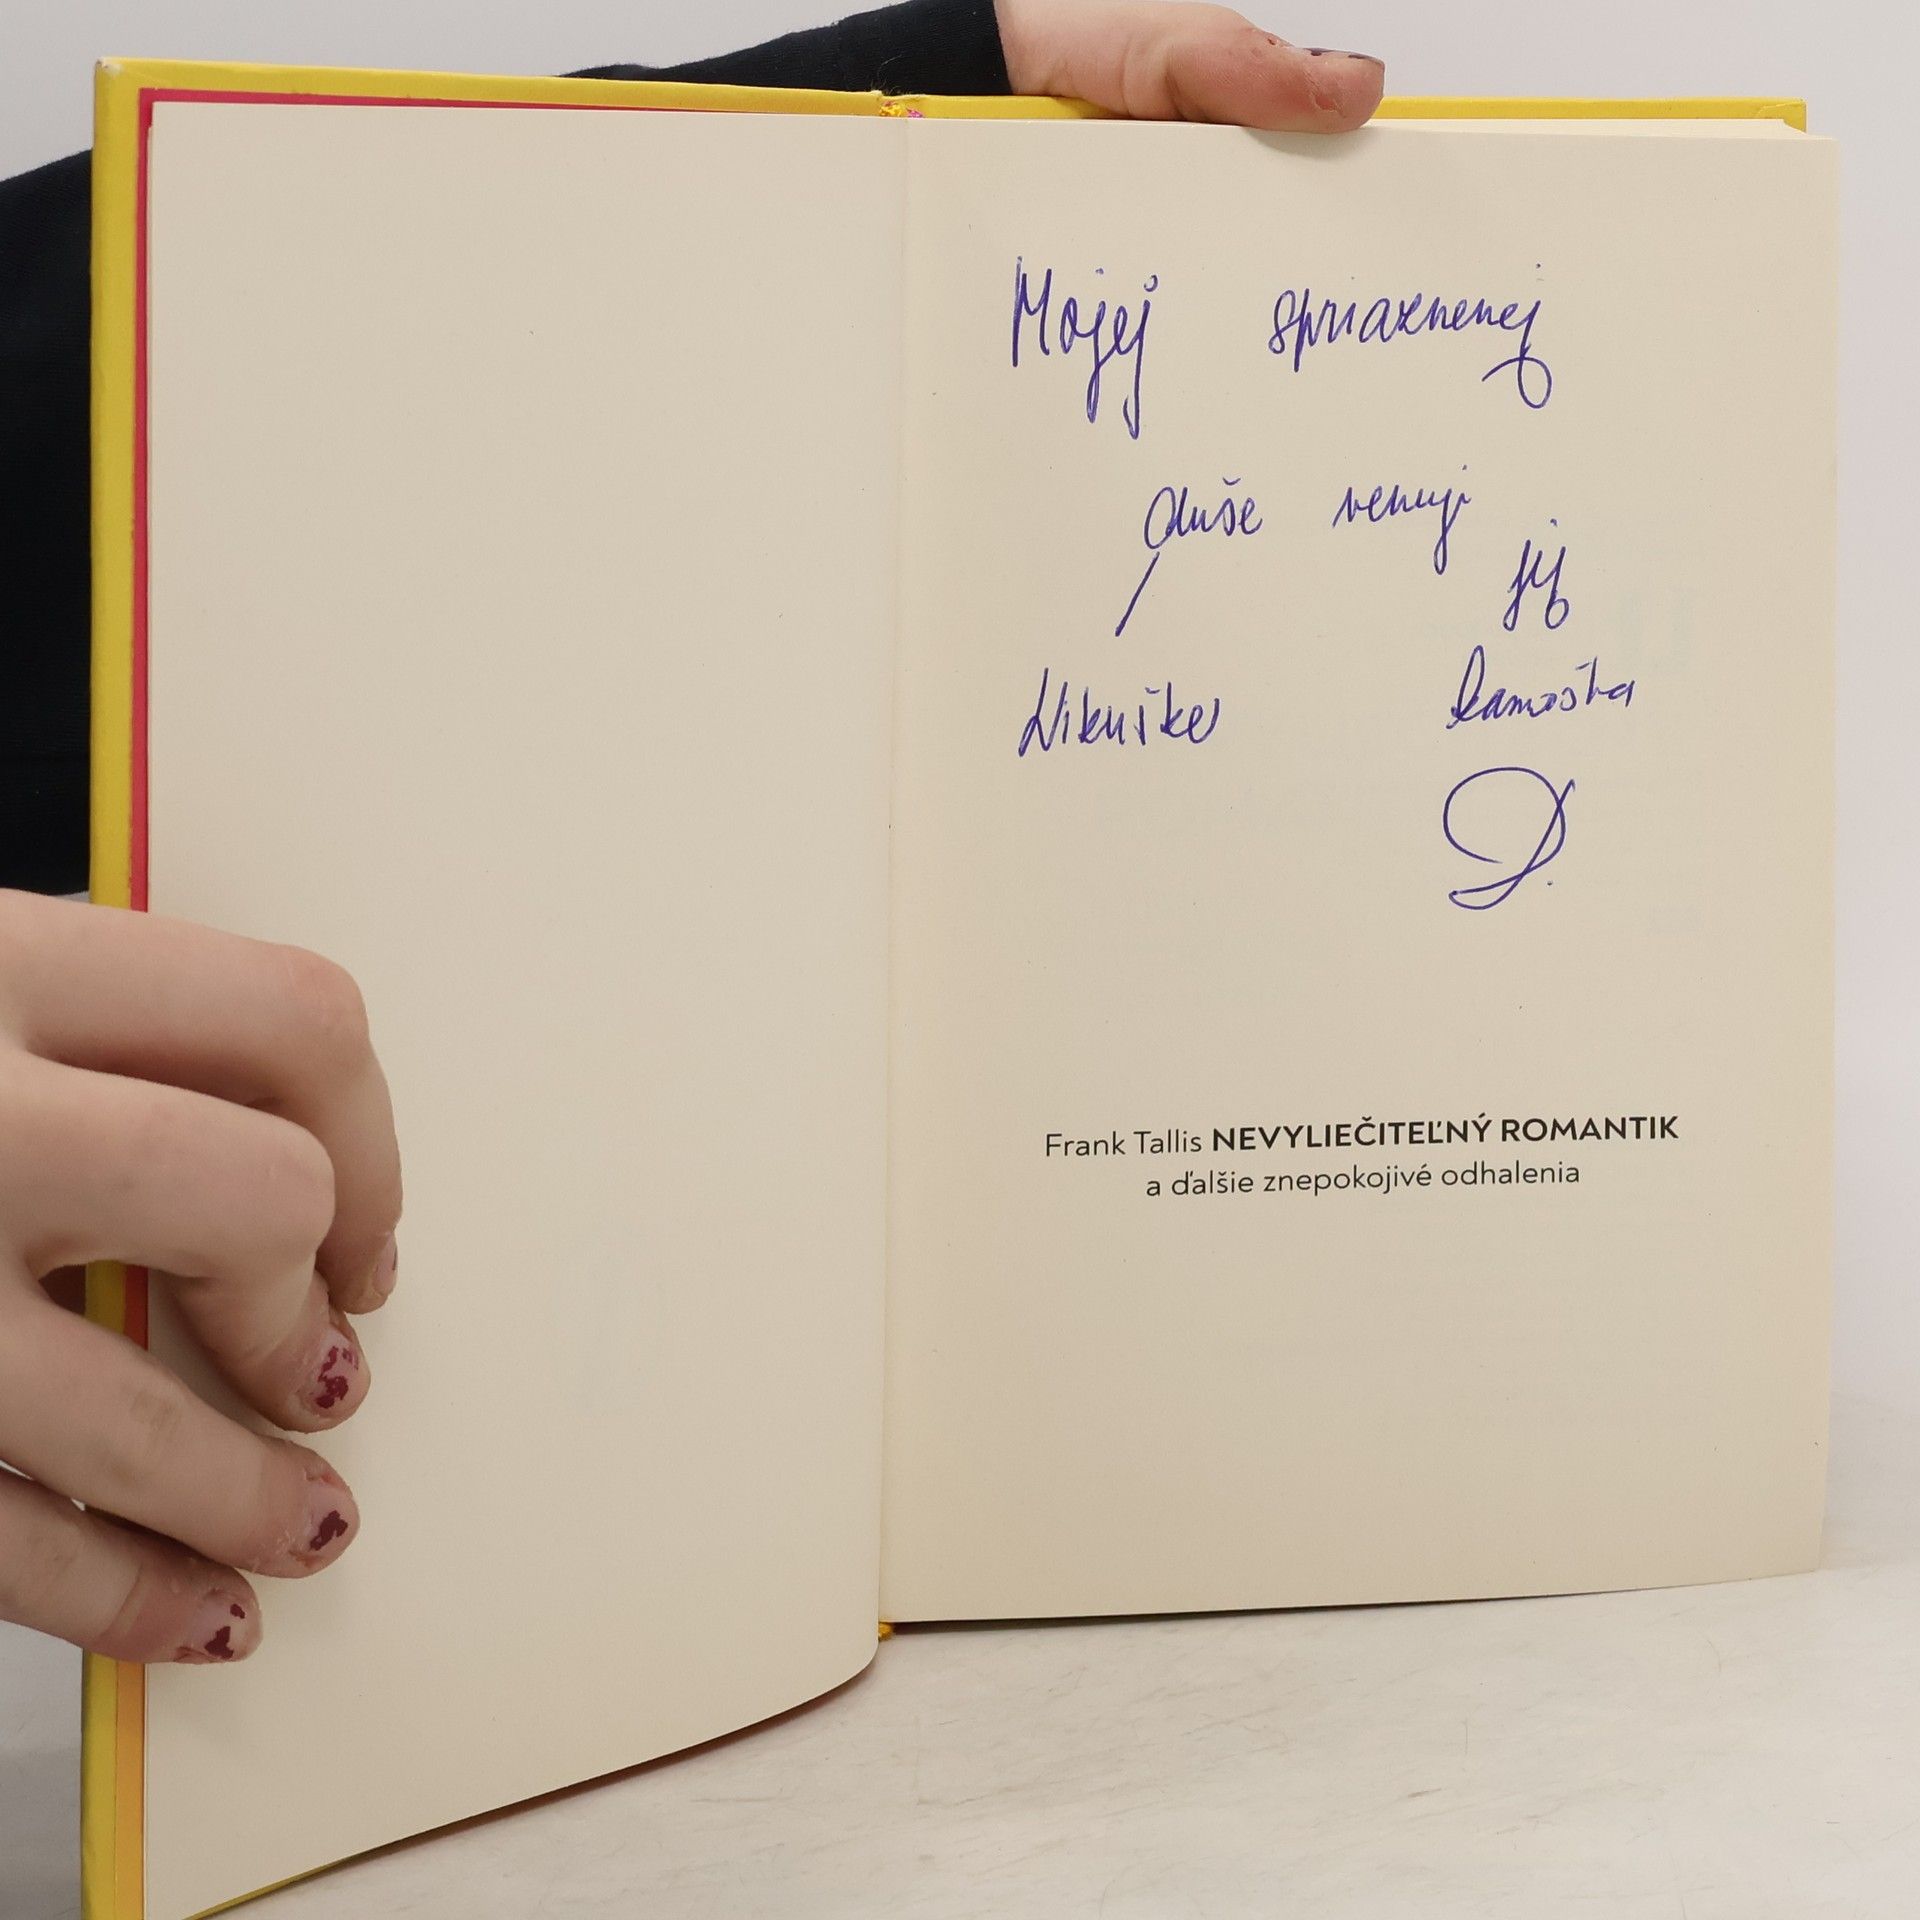 Mojej spriaznenej
duše venuje
jej
Nikuške kamoška
D.
Frank Tallis NEVYLIEČITEĽNÝ ROMANTIK
a ďalšie znepokojivé odhalenia